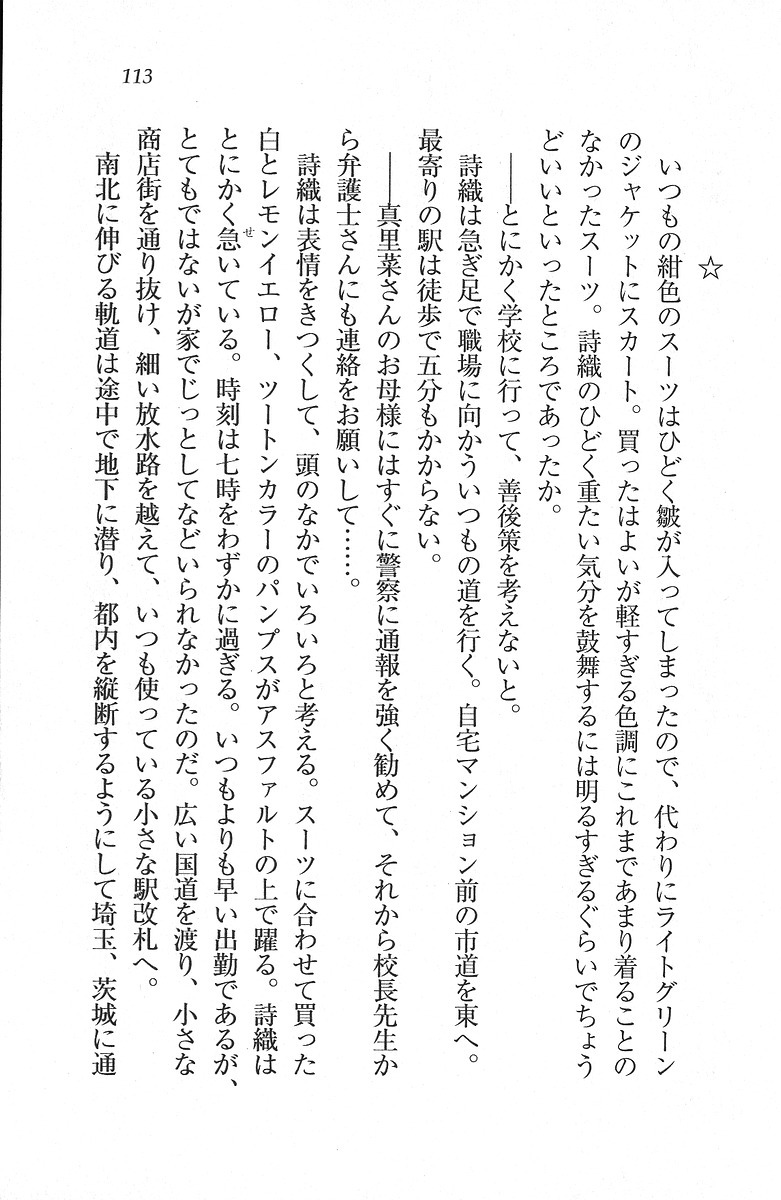 113
☆
いつもの紺色のスーツはひどく皺が入ってしまったので、代わりにライトグリーン
のジャケットにスカート。買ったはよいが軽すぎる色調にこれまであまり着ることの
なかったスーツ。詩織のひどく重たい気分を鼓舞するには明るすぎるぐらいでちょう
どいいといったところであったか。
――とにかく学校に行って、善後策を考えないと。
詩織は急ぎ足で職場に向かういつもの道を行く。自宅マンション前の市道を東へ。
最寄りの駅は徒歩で五分もかからない。
――真里菜さんのお母様にはすぐに警察に通報を強く勧めて、それから校長先生か
ら弁護士さんにも連絡をお願いして……。
詩織は表情をきつくして、頭のなかでいろいろと考える。スーツに合わせて買った
白とレモンイエロー、ツートンカラーのパンプスがアスファルトの上で躍る。詩織は
とにかく急せいている。時刻は七時をわずかに過ぎる。いつもよりも早い出勤であるが、
とてもではないが家でじっとしてなどいられなかったのだ。広い国道を渡り、小さな
商店街を通り抜け、細い放水路を越えて、いつも使っている小さな駅改札へ。
南北に伸びる軌道は途中で地下に潜り、都内を縦断するようにして埼玉、茨城に通